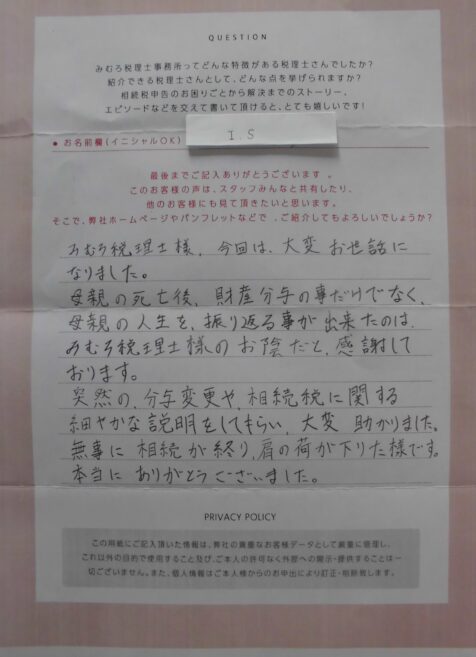 QUESTION
みむろ税理士事務所ってどんな特徴がある税理士さんでしたか?
紹介できる税理士さんとして、どんな点を挙げられますか?
相続税申告のお困りごとから解決までのストーリー、
エピソードなどを交えて書いて頂けると、とても嬉しいです!
● お名前欄(イニシャルOK)
I.S
最後までご記入ありがとうございます。
このお客様の声は、スタッフみんなと共有したり、
他のお客様にも見て頂きたいと思います。
そこで、弊社ホームページやパンフレットなどで、ご紹介してもよろしいでしょうか?
みむろ税理士様、今回は、大変お世話に
なりました。
母親の死亡後、財産分与の事だけでなく、
母親の人生を、振り返る事が出来たのは、
みむろ税理士様のお陰だと、感謝して
おります。
突然の、分与変更や、相続税に関する
細やかな説明をしてもらい、大変助かりました。
無事に相続が終り、肩の荷が下りた様です。
本当にありがとうございました。
PRIVACY POLICY
この用紙にご記入頂いた情報は、弊社の貴重なお客様データとして厳重に管理し、
これ以外の目的で使用すること及び、ご本人の許可なく外部への開示・提供することは一
切ございません。また、個人情報はご本人様からのお申出により訂正・削除致します。